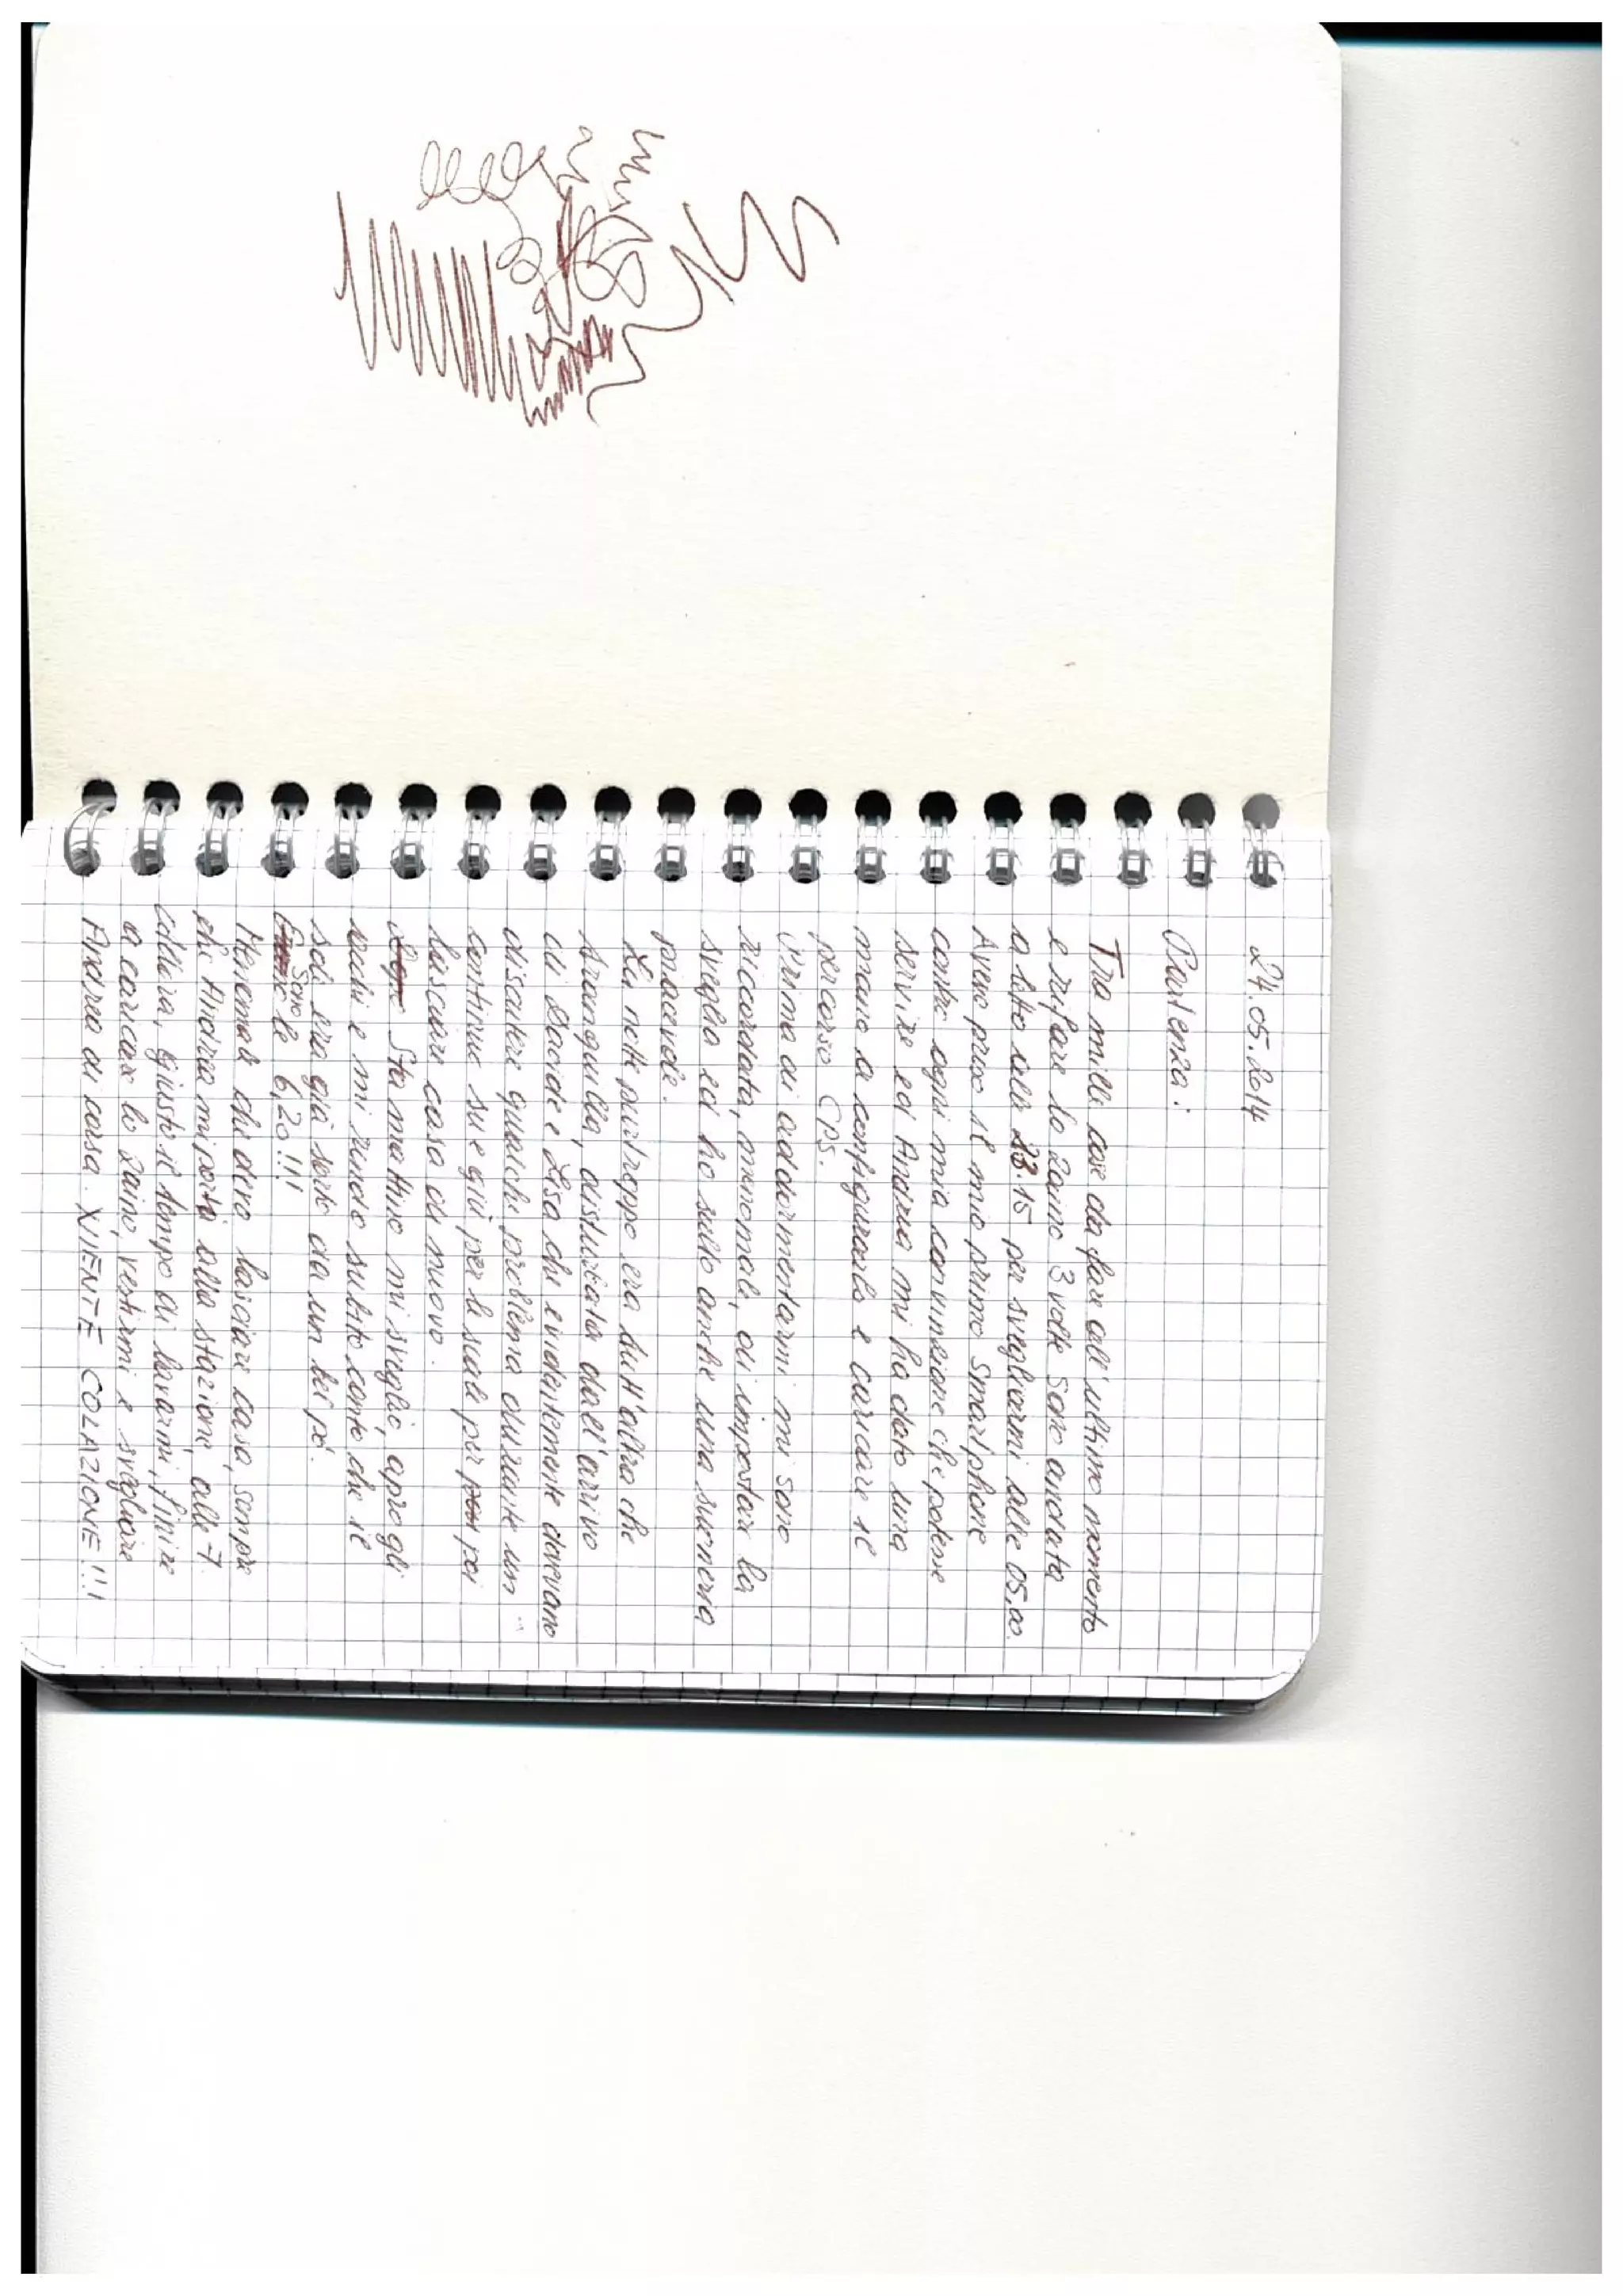 24.05.2014
Partenza:
Tra mille cose da fare all'ultimo momento
e rifare lo zaino 3 volte sono andata
a letto alle 23.15 per svegliarmi alle 05,00.
Avevo preso il mio primo Smartphone
contro ogni mia convinzione che potesse
servire ed Andrea mi ha dato una
mano a configurarlo e caricare il
percorso GPS.
Prima di addormentarmi mi sono
riccordata, menomale, di impostare la
sveglia ed ho scelto anche una suoneria
piacevole.
La notte purtroppo era tutt'altro che
tranquilla, disturbata dall'arrivo
di Davide e Lisa che evidentemente dovevano
discutere qualche problema durante un
continuo su e giù per le scale per poi
lasciare casa di nuovo.
Sta mattina mi sveglio, apro gli
occhi e mi rendo subito conto che il
sole era già sorto da un bel pò.
Sono le 6,20!!!
Menomale che devo lasciare casa, sempre
che Andrea mi porti alla stazione, alle 7.
Allora, giusto il tempo di lavarmi, finire
a caricare lo zaino, vestirmi e svegliare
Andrea di corsa. XNIENTE COLAZIONE!!!